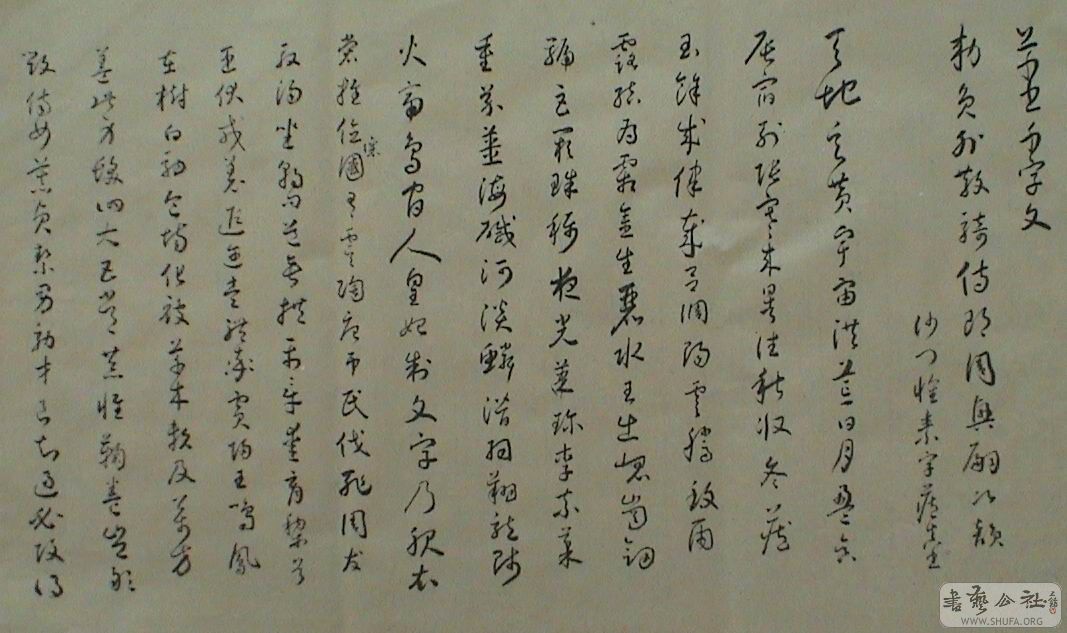 草書千字文
勅員外散騎侍郎周興嗣次韻
沙門懷素字藏真書
天地玄黃宇宙洪荒日月盈昃
辰宿列張寒來暑往秋收冬藏
閏餘成律歲呂調陽雲騰致雨
露結為霜金生麗水玉出崑崗劍
號巨闕珠稱夜光菓珍李柰菜
重芥薑海鹹河淡鱗潛羽翔龍師
火帝鳥官人皇始制文字乃服衣
裳推位讓國有虞陶唐弔民伐罪周發
殷湯坐朝問道垂拱平章愛育黎首
臣伏戎羌遐邇壹體率賓歸王鳴鳳
在樹白駒食場化被草木賴及萬方
蓋此身髮四大五常恭惟鞠養豈敢
毀傷女慕貞絜男效才良知過必改得
書藝公社
WWW.SHUFA.ORG